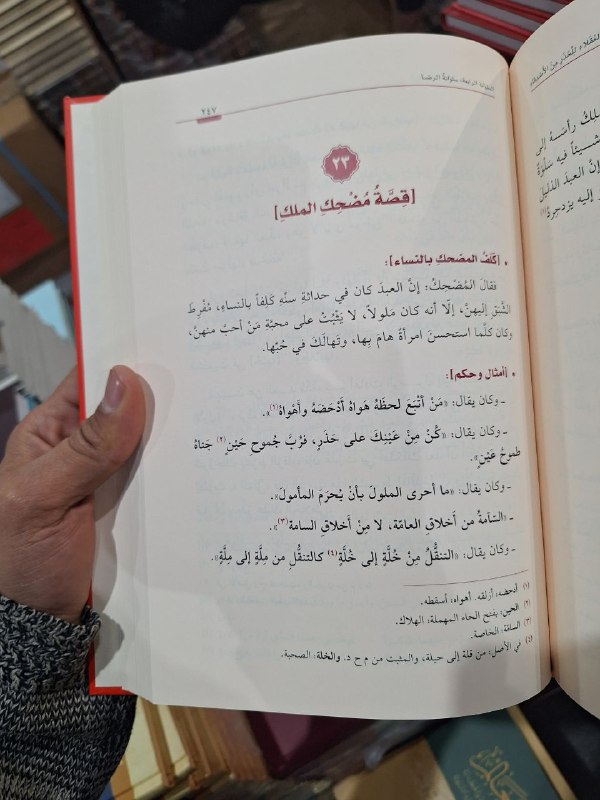 السلوانة الرابعة: سلوانة الرضا
٢٤٧
٢٣
[قِصَّةُ مُضْحِكِ الملكِ]
• [كَلَفُ المضحكِ بالنساء]:
فقالَ المُضْحِكُ: إنَّ العبدَ كان في حداثةِ سنِّهِ كَلِفاً بالنساءِ، مُفْرِطَ
الشَّبَقِ إليهنَّ، إلّا أنه كان مَلُولاً، لا يَثْبُتُ على محبّةِ مَنْ أحبَّ منهنَّ،
وكان كلَّما استحسنَ امرأةً هامَ بِها، وتَهالَكَ في حُبِّها.
• [أمثال وحكم]:
ـ وكان يقال: «مَنْ أَتْبَعَ لحظَهُ هَواهُ أَدْحَضَهُ وأَهْواهُ(١)».
ـ وكان يقال: «كُنْ مِنْ عَيْنِكَ على حَذَرٍ، فرُبَّ جُموحِ حَيْنٍ(٢) جَناهُ
طموحُ عَيْنٍ».
ـ وكان يقال: «ما أحرى الملولَ بأنْ يُحرَمَ المأمولَ».
ـ «السَّآمةُ من أخلاقِ العامّة، لا مِنْ أخلاقِ السامة(٣)».
ـ وكان يقال: «التنقُّلُ مِنْ خُلَّةٍ إلى خُلَّةٍ(٤) كالتنقُّلِ من مِلَّةٍ إلى مِلَّةٍ».
(١) أدحضه: أزلقه. أهواه: أسقطه.
(٢) الحين: بفتح الحاء المهملة: الهلاك.
(٣) السامّة: الخاصة.
(٤) في الأصل: من قلة إلى حيلة، والمثبت من م ح د. والخلة: الصحبة.
رأسَهُ إلى
فيه سَلْوةٌ
إنَّ العبدَ الذليلَ
إليه يزدجرهُ(١)